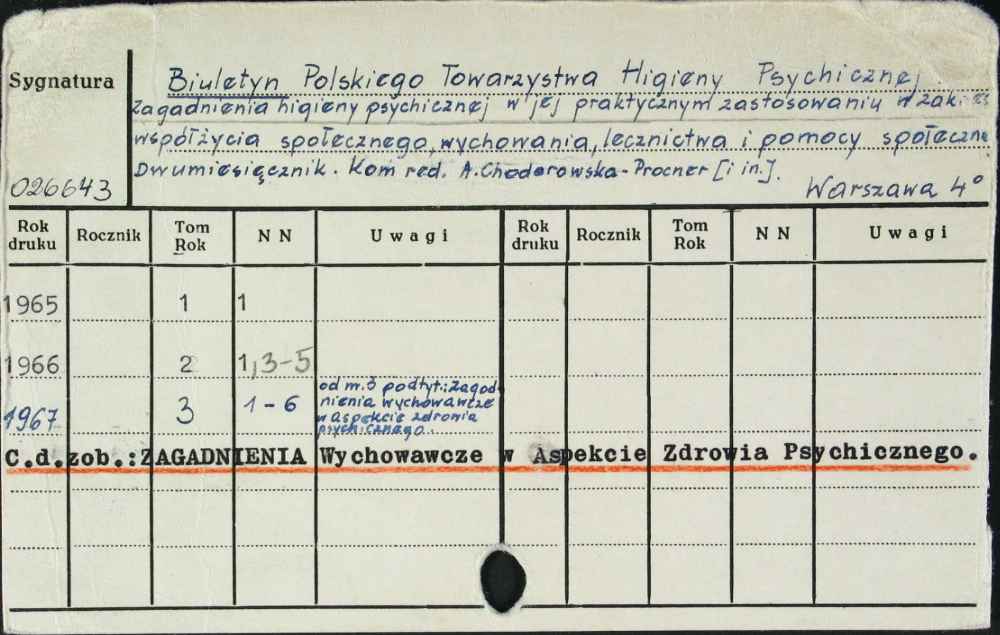 Sygnatura
Biuletyn Polskiego Towarzystwa Higieny Psychicznej.
Zagadnienia higieny psychicznej w jej praktycznym zastosowaniu w zakr.
współżycia społecznego, wychowania, lecznictwa i pomocy społeczne
Dwumiesięcznik. Kom red. A. Chodorowska-Procner [i in.].
026643
Warszawa 4°
Rok druku Rocznik Tom Rok N N Uwagi Rok druku Rocznik Tom Rok N N Uwagi
1965 1 1
1966 2 1,3-5
1967 3 1-6
od nr. 3 podtyt.: Zagad-
nienia wychowawcze
w aspekcie zdrowia
psychicznego.
C.d.zob.:ZAGADNIENIA Wychowawcze w Aspekcie Zdrowia Psychicznego.